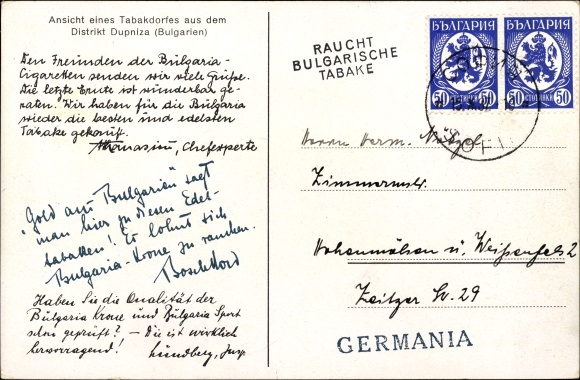 Ansicht eines Tabakdorfes aus dem
Distrikt Dupniza (Bulgarien)
Den Freunden der Bulgaria-
Cigaretten senden wir viele Grüße.
Die letzte Ernte ist wunderbar ge-
raten. Wir haben für die Bulgaria
wieder die besten und edelsten
Tabake gekauft.
Athanasiu, Chefexperte
"Gold aus Bulgarien" sagt
man hier zu diesen Edel-
tabaken! Es lohnt sich
Bulgaria-Krone zu rauchen.
Haben Sie die Qualität der
Bulgaria Krone und Bulgaria Sport
schon geprüft? – Die ist wirklich
hervorragend! Lundberg, Insp.
RAUCHT
BULGARISCHE
TABAKE
БЪЛГАРИЯ
50 СТОТИНКИ 50
БЪЛГАРИЯ
50 СТОТИНКИ 50
Herrn Herm.
Zimmermstr.
Hohenmölsen ü. Weissenfels 2
Zeitzer Str. 29
GERMANIA